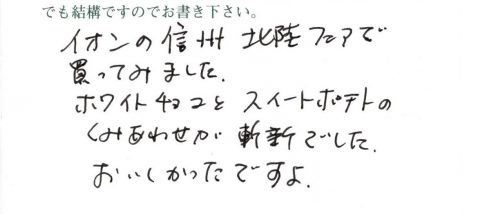 でも結構ですのでお書き下さい。
イオンの信州 北陸フェアで
買ってみました.
ホワイトチョコと スイートポテトの
くみあわせが 斬新でした.
おいしかったですよ.